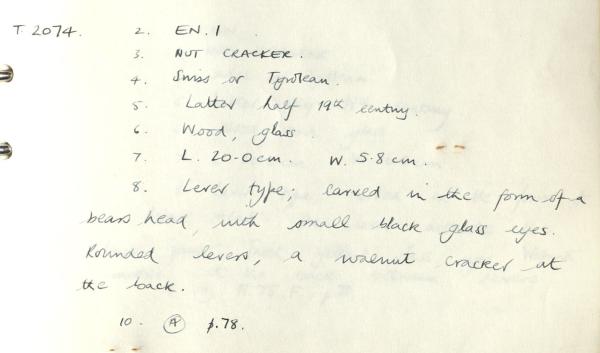 T. 2074. 2. EN. 1
3. NUT CRACKER.
4. Swiss or Tyrolean.
5. Latter half 19th century.
6. Wood, glass.
7. L. 20.0 cm. W. 5.8 cm.
8. Lever type; carved in the form of a
bears head, with small black glass eyes.
Rounded levers, a walnut cracker at
the back.
10. (A) p.78.